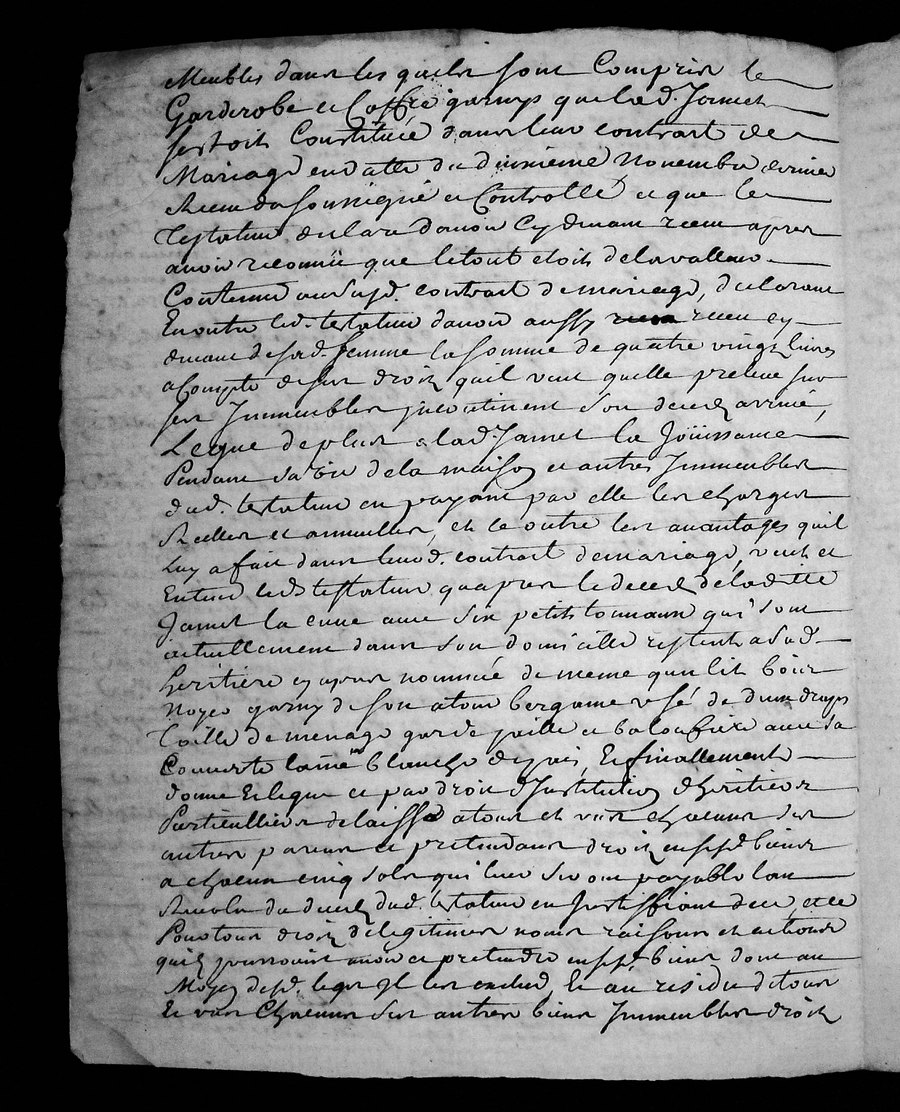 Meubles dans les quels sont Compris le
Garderobe et Coffre garnys que lad. Jamet
sestoit Constituée dans leur contract de
Mariage en datte du dixieme Novembre dernier
Receu du soussigné et Controllé et que le
Testateur declare d'avoir Cy devant receu apres
avoir reconnü que le tout etoit de la valleur
Contenue au susd. contract de mariage, declarant
En outre led. testateur d'avoir aussy receu cy
devant de sad. femme la somme de quatre vingt livres
a Compte de ses droits quil veut quelle preleve sur
ses Immeubles incontinent son deced arrivé,
Legue de plus a lad. Jamet la Joüissance
Pendant sa vie de la maison et autres Immeubles
dud. testateur en payant par elle les charges
Reelles et annuelles, et ce outre les avantages quil
Luy a fait dans leurd. contract de mariage, veut et
Entend led. testateur qu'apres le deced de ladite
Jamet la cuve avec six petits tonneaux qui sont
actuellement dans son domicille restent a sad.
heritiere cy apres nommée de meme qu'un lit bois
Noyer garny de son atour bergame usé de deux draps
Toille de menage garde paille et balouffiere avec sa
Couverte laine blanche de pais, Et finallement
donne Et legue et par droit d'Institution d'heritiers
Particulliers delaisse a tous et uns chacuns ses
autres parens et pretendans droit en ses biens
a chacun cinq sols qui leur seront payable lan
Revolu du deced dud. testateur en justiffiant deue, et ce
Pour tous droits de legitimes noms raisons et actions
quils pourroient avoir et pretendre en ses biens dont au
Moyen desd. legs il les exclud, Et au residu de tous
Et uns Chacuns ses autres biens Immeubles droits